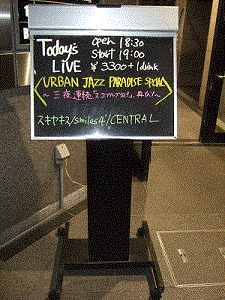 Today's LIVE
open 18:30
start 19:00
¥3300+1drink
URBAN JAZZ PARADISE SPECIAL
～三夜連続
スキヤキス/smiles4/CENTRAL